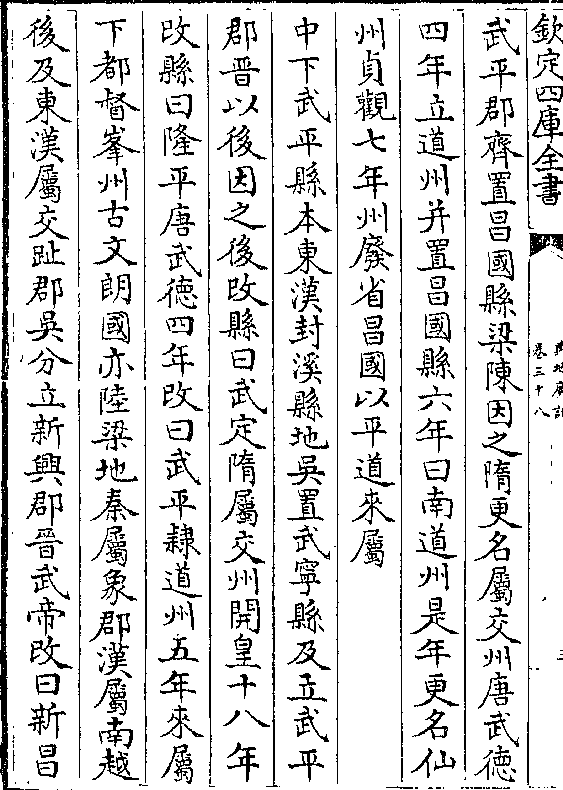 欽定四庫全書
卷三十八
武平郡齊置昌國縣梁陳因之隋更名屬交州唐武德
四年立道州并置昌國縣六年曰南道州是年更名仙
州貞觀七年州廢省昌國以平道來屬
中下武平縣本東漢封溪縣地吳置武寧縣及立武平
郡晉以後因之後改縣曰武定隋屬交州開皇十八年
改縣曰隆平唐武德四年改曰武平隸道州五年來屬
下都督峯州古文朗國亦陸梁地秦屬象郡漢屬南越
後及東漢屬交趾郡吳分立新興郡晉武帝改曰新昌